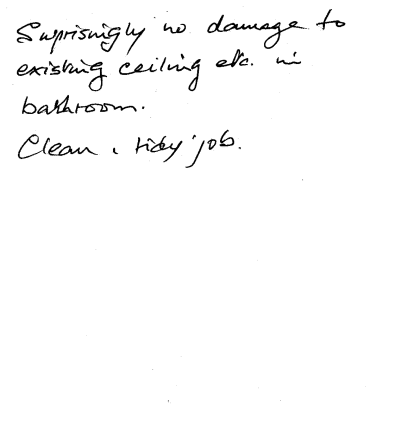 Surprisingly no damage to
existing ceiling etc. in
bathroom.
Clean, tidy job.